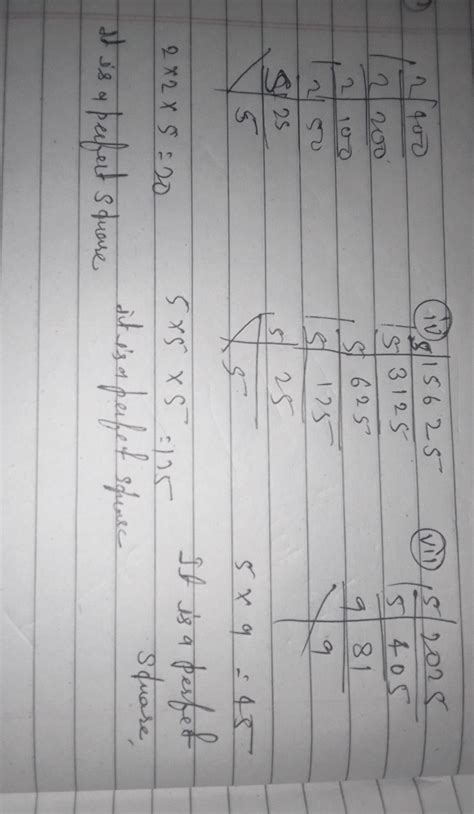 2 400
2 200
2 100
2 50
5 25
5
2 × 2 × 5 = 20
It is a perfect square
iv
5 15625
5 3125
5 625
5 125
5 25
5
5 × 5 × 5 = 125
it is a perfect square
vii
5 2025
5 405
9 81
9
5 × 9 = 45
It is a perfect
square.